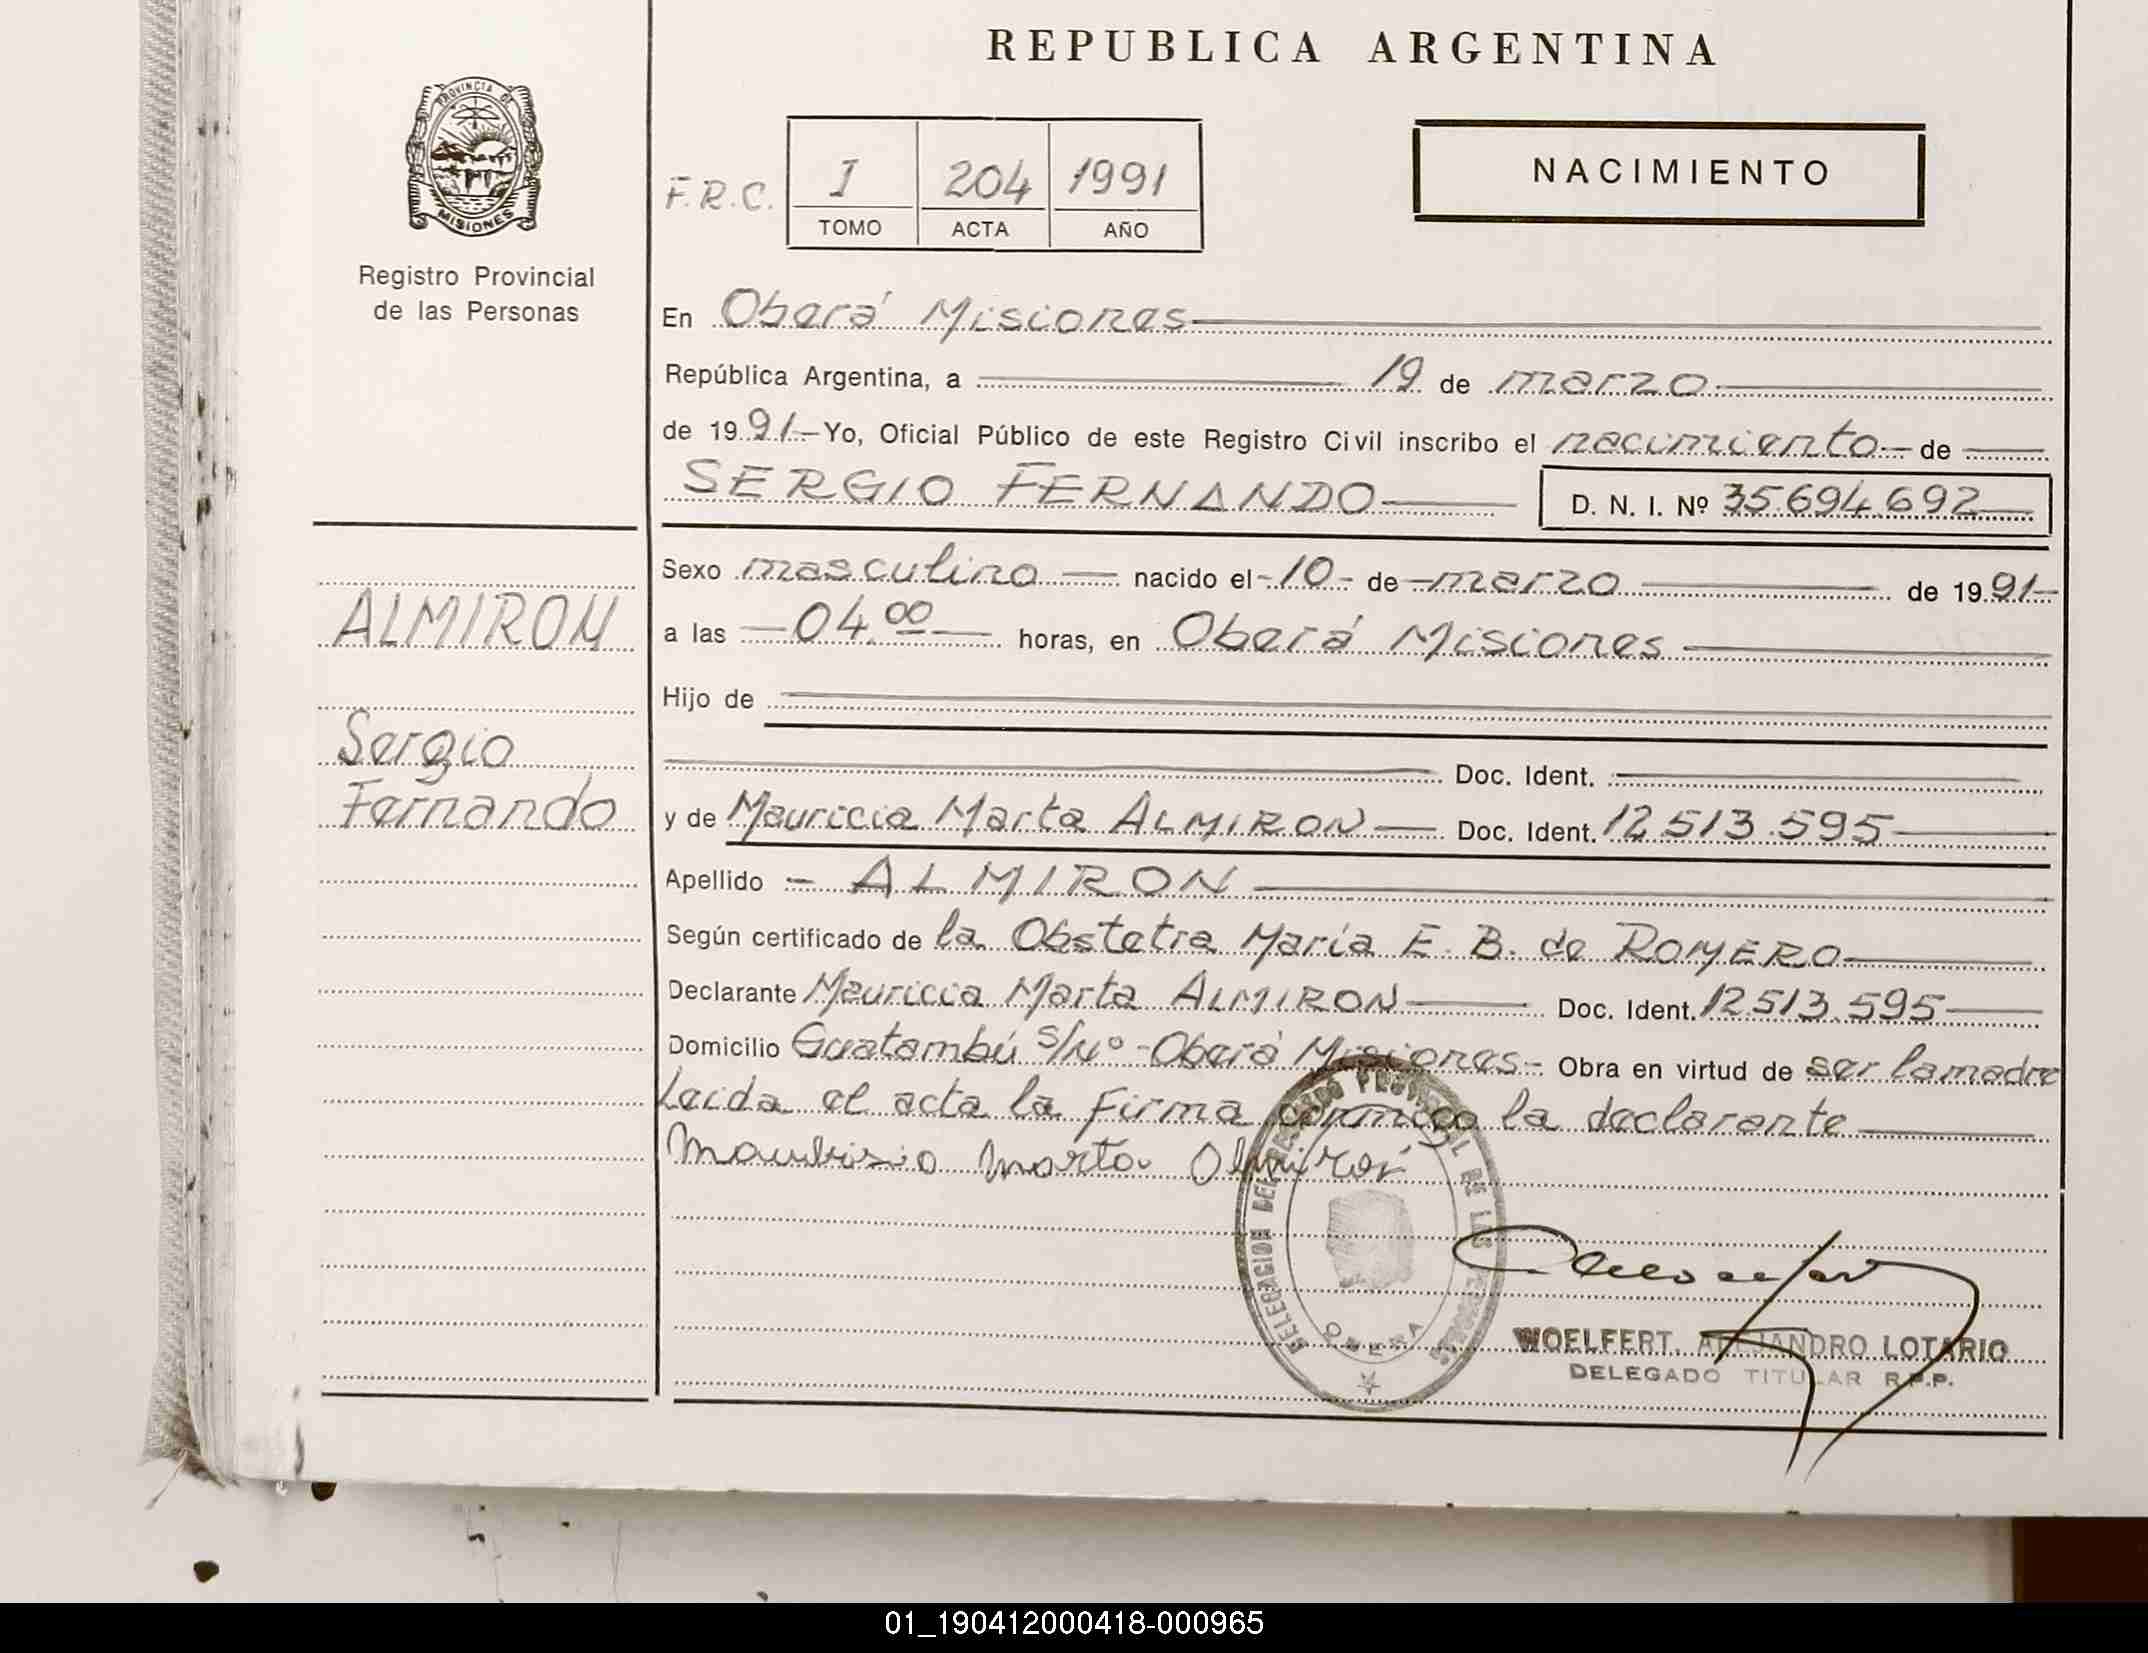 REPUBLICA ARGENTINA
PROVINCIA DE
MISIONES
Registro Provincial
de las Personas
F.R.C.
I 204 1991
TOMO ACTA AÑO
NACIMIENTO
En Oberá Misiones
República Argentina, a 19 de marzo
de 1991- Yo, Oficial Público de este Registro Civil inscribo el nacimiento de
SERGIO FERNANDO D. N. I. Nº 35.694.692
Sexo masculino nacido el -10- de marzo de 1991-
a las 04.00 horas, en Oberá Misiones
Hijo de
Doc. Ident.
y de Mauricia Marta ALMIRON Doc. Ident. 12.513.595
Apellido - ALMIRON
Según certificado de la Obstetra María E. B. de ROMERO
Declarante Mauricia Marta ALMIRON Doc. Ident. 12.513.595
Domicilio Guatambú s/Nº - Oberá Misiones.- Obra en virtud de ser la madre
Leida el acta la firma conmigo la declarante
Marta
ALMIRON
Sergio
Fernando
DELEGACION DEL REGISTRO PROVINCIAL DE LAS PERSONAS
OBERA
WOELFERT, ALEJANDRO LOTARIO
DELEGADO TITULAR R.P.P.
01_190412000418-000965